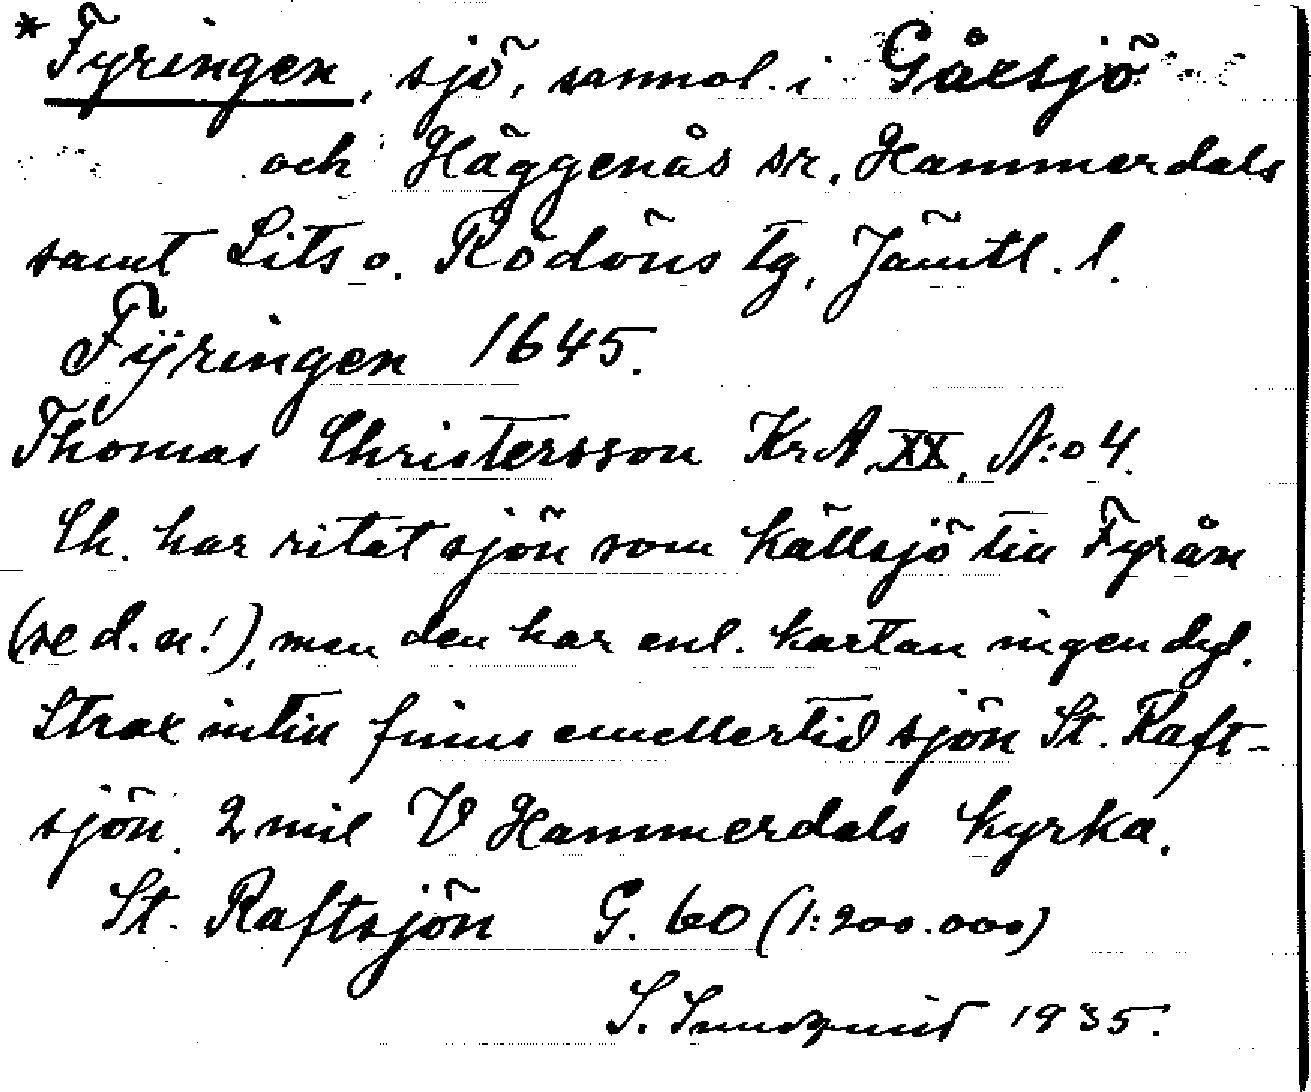 *Fyringen, sjö, sannol. i Gåxsjö
och Häggenås sr, Hammerdals
samt Lits o. Rödöns tg, Jämtl. l.
Fÿringen 1645.
Thomas Christersson KrA XX, N:o 4.
Ch. har ritat sjön som källsjö till Fyrån
(se d. n!), men den har enl. kartan ingen dyl.
Strax intill finns emellertid sjön St. Raft-
sjön. 2 mil V Hammerdals kyrka.
St. Raftsjön G. 60 (1:200.000)
S. Sundqvist 1935.